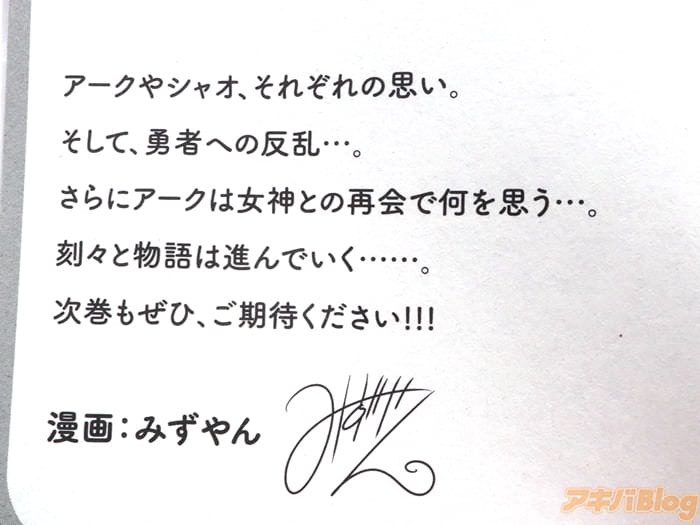 アークやシャオ、それぞれの思い。
そして、勇者への反乱…。
さらにアークは女神との再会で何を思う…。
刻々と物語は進んでいく……。
次巻もぜひ、ご期待ください!!!
漫画：みずやん
アキバBlog